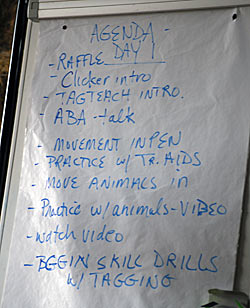 AGENDA -
DAY 1
- RAFFLE
- Clicker intro
- TAGTEACH INTRO.
- ABA - talk
- MOVEMENT IN PEN
- PRACTICE w/ TR. AIDS
- MOVE ANIMALS in
- Practice w/ animals - VIDEO
- watch video
- BEGIN SKILL DRILLS
w/ TAGGING